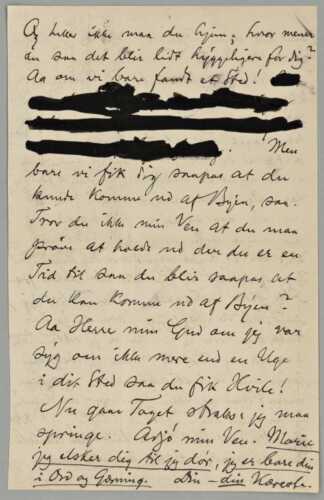 Og heller ikke maa du hjem; hvor mener
du saa det blir lidt hyggeligere for dig?
Aa om vi bare fandt et Sted!
Men
bare vi fik dig saapas at du
kunde komme ud af Byen, saa.
Tror du ikke min Ven at du maa
prøve at holde ud der du er en
Tid til saa du blir saapas at
du kan komme ud af Byen?
Aa Herre min Gud om jeg var
syg om ikke mere end en Uge
i dit Sted saa du fik Hvile!
Nu gaar Toget straks, jeg maa
springe. Adjø min Ven. Marie
jeg elsker dig til jeg dør, jeg er bare din
i Ord og Gærning. Din – din Kæreste.